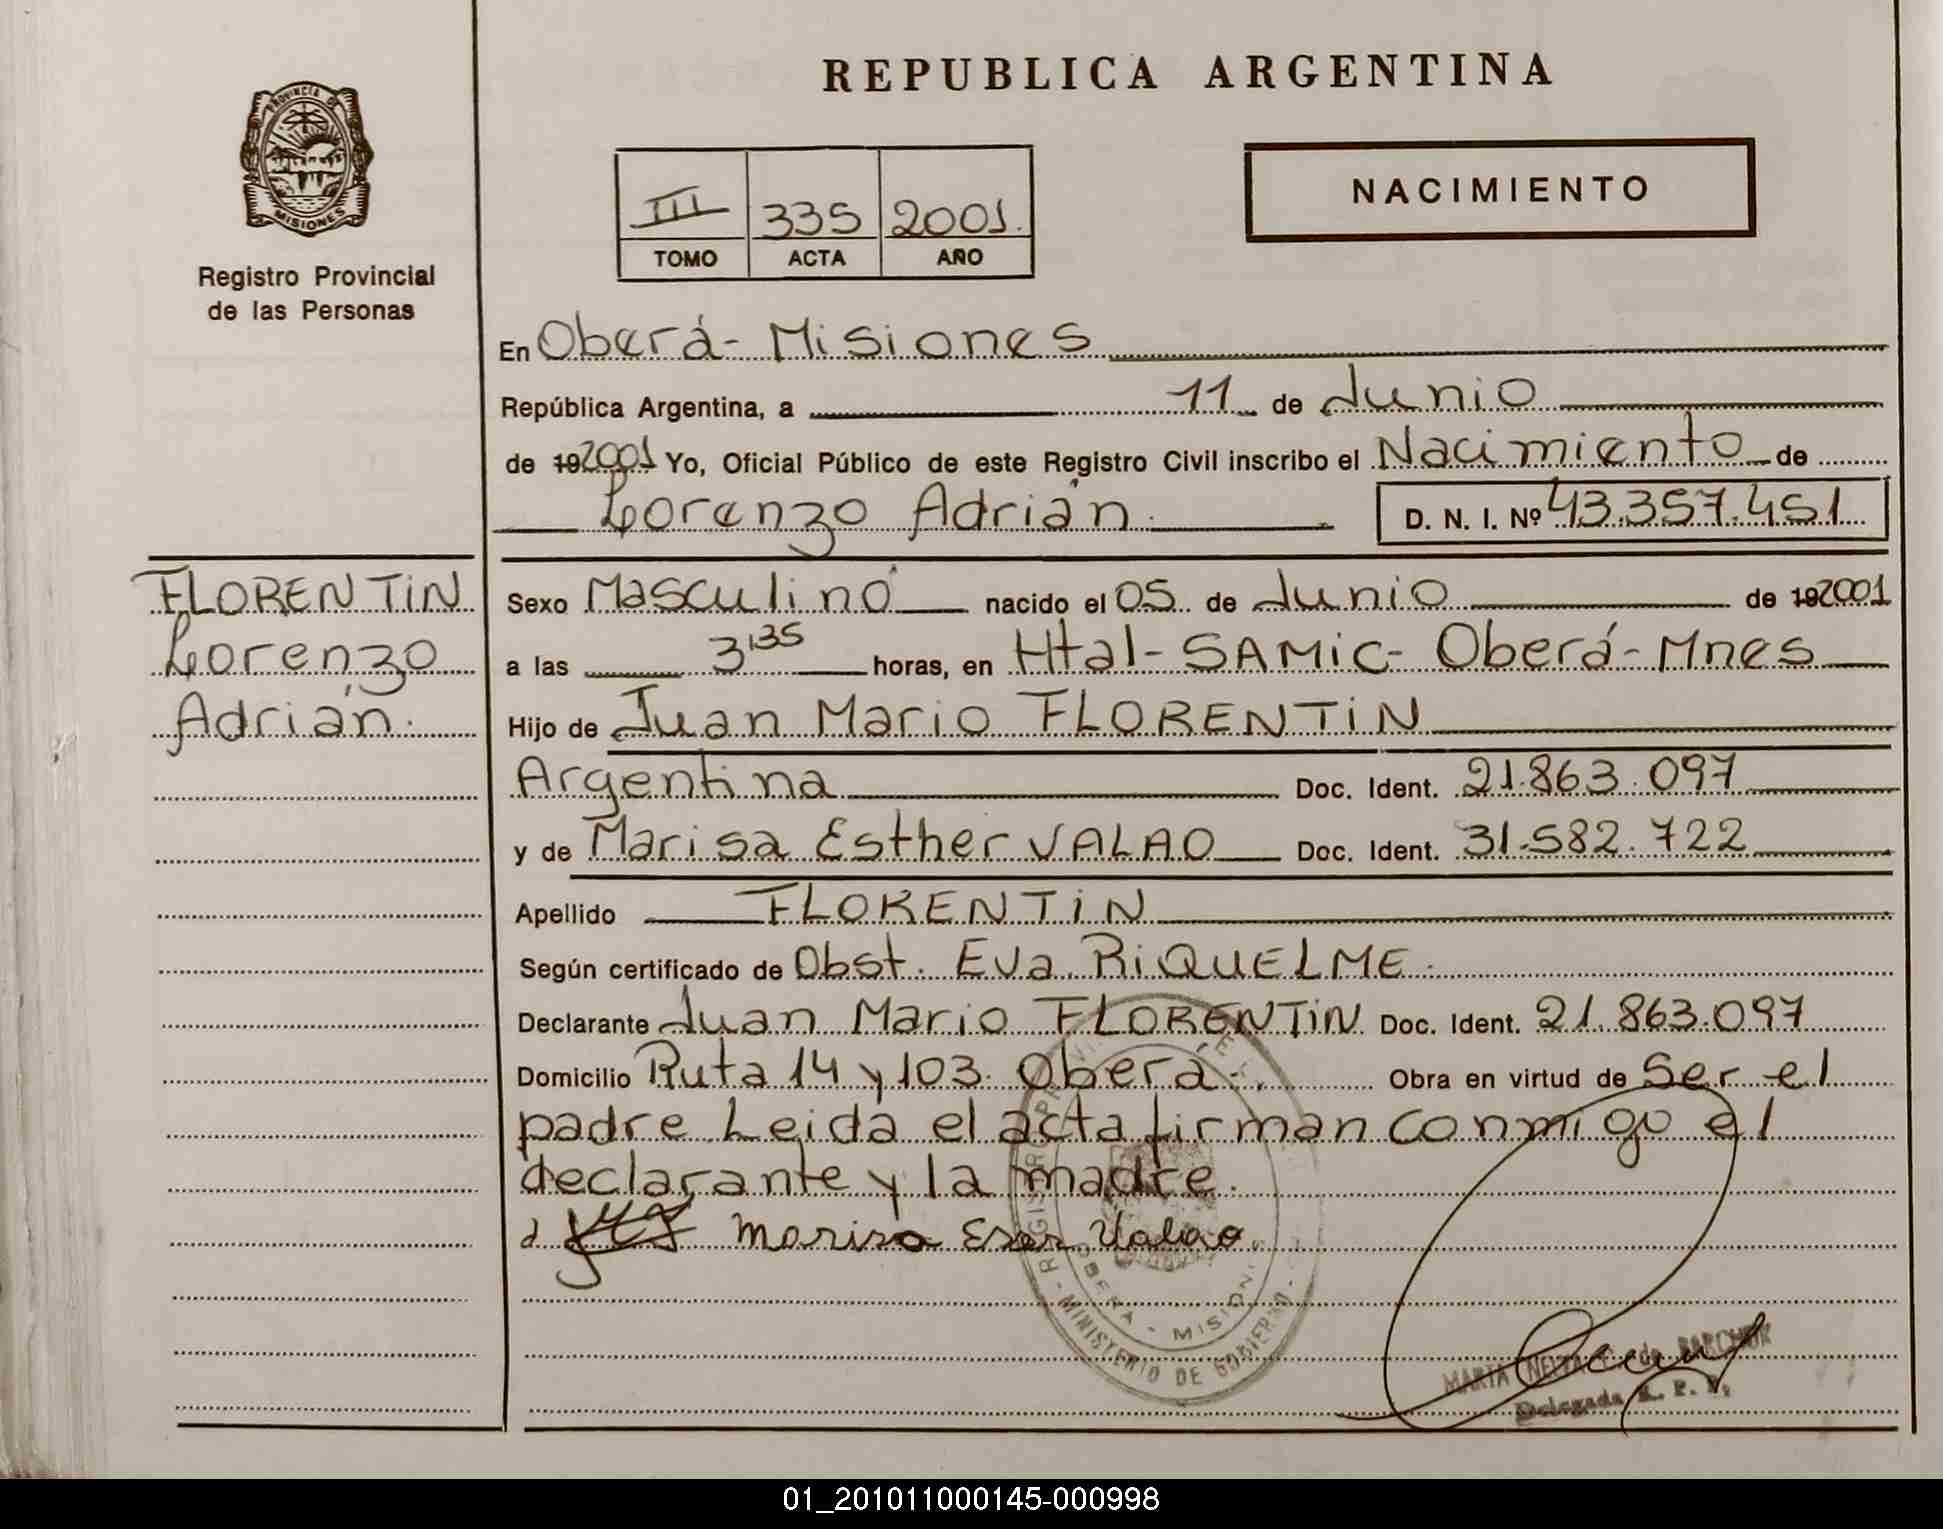 REPUBLICA ARGENTINA
PROVINCIA DE
MISIONES
Registro Provincial
de las Personas
NACIMIENTO
III 335 2001.
TOMO ACTA AÑO
En Oberá- Misiones
República Argentina, a 11 de Junio
de 192001 Yo, Oficial Público de este Registro Civil inscribo el Nacimiento de
Lorenzo Adrián. D. N. I. Nº 43.357.451
FLORENTIN
Lorenzo
Adrián.
Sexo Masculino nacido el 05 de Junio de 192001
a las 3,35 horas, en Htal- SAMIC- Oberá- Mnes
Hijo de Juan Mario FLORENTIN
Argentina Doc. Ident. 21.863.097
y de Marisa Esther VALAO Doc. Ident. 31.582.722
Apellido FLORENTIN
Según certificado de Obst. Eva RIQUELME.
Declarante Juan Mario FLORENTIN Doc. Ident. 21.863.097
Domicilio Ruta 14 y 103. Oberá-. Obra en virtud de Ser el
padre Leida el acta firman conmigo el
declarante y la madre.
Marisa Ester Valao
OBERA - MISIONES
MINISTERIO DE GOBIERNO
MARTA NELIDA de
Delegada R. P. P.
01_201011000145-000998